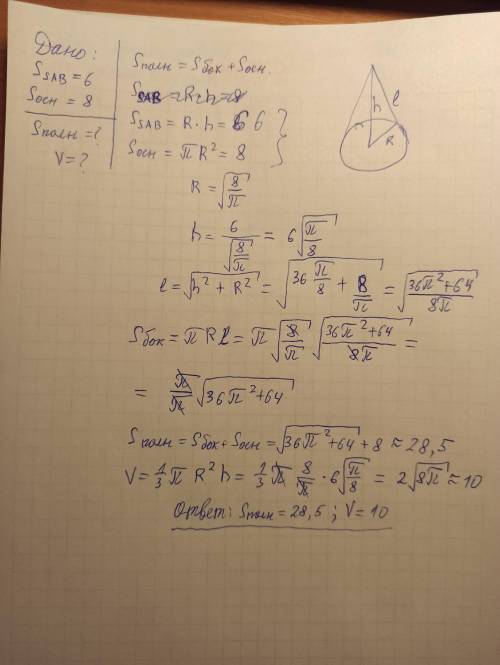 Дано:
S_SAB = 6
Sосн = 8
Sполн = ?
V = ?
Sполн = Sбок + Sосн.
S_SAB = R·h = 6 6
Sосн = πR² = 8
R = √(8/π)
h = 6/√(8/π) = 6√(π/8)
l = √(h² + R²) = √(36 π/8 + 8/π) = √((36π² + 64)/8π)
Sбок = πRl = π √8/√π √((36π² + 64)/8π) =
= π/π √(36π² + 64)
Sполн = Sбок + Sосн = √(36π² + 64) + 8 ≈ 28,5
V = 1/3 π R² h = 1/3 π 8/π · 6√(π/8) = 2√(8π) ≈ 10
Ответ: Sполн = 28,5 ; V = 10
h l
R